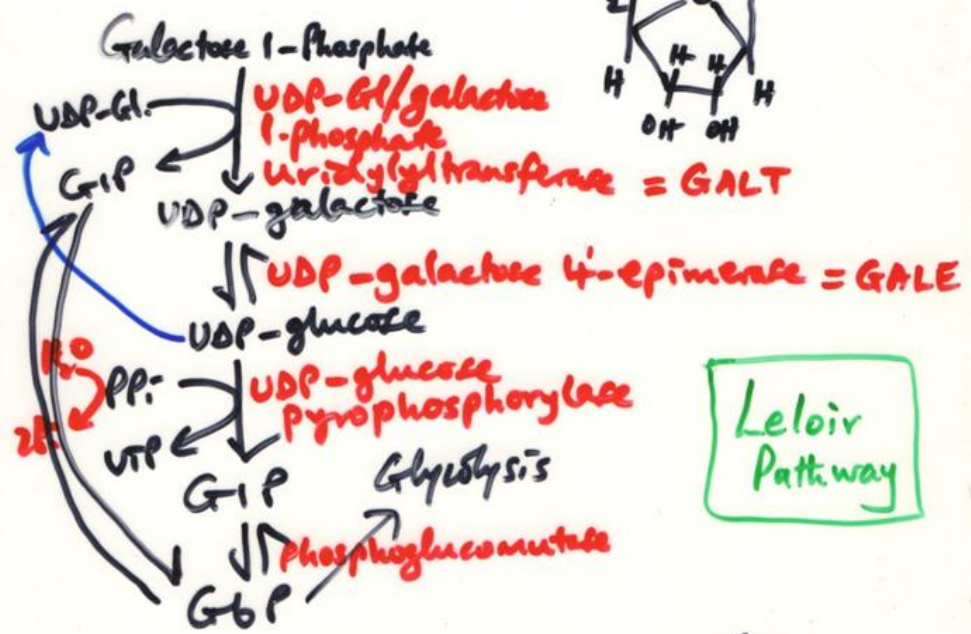 2
H
H H
H
OH OH
Galactose 1-Phosphate
UDP-Gl.
UDP-Gl/galactose
1-phosphate
uridylyltransferase = GALT
G1P
UDP-galactose
UDP-galactose 4'-epimerase = GALE
UDP-glucose
H2O
PPi
2Pi
UDP-glucose
pyrophosphorylase
UTP
G1P
Glycolysis
Phosphoglucomutase
G6P
Leloir
Pathway